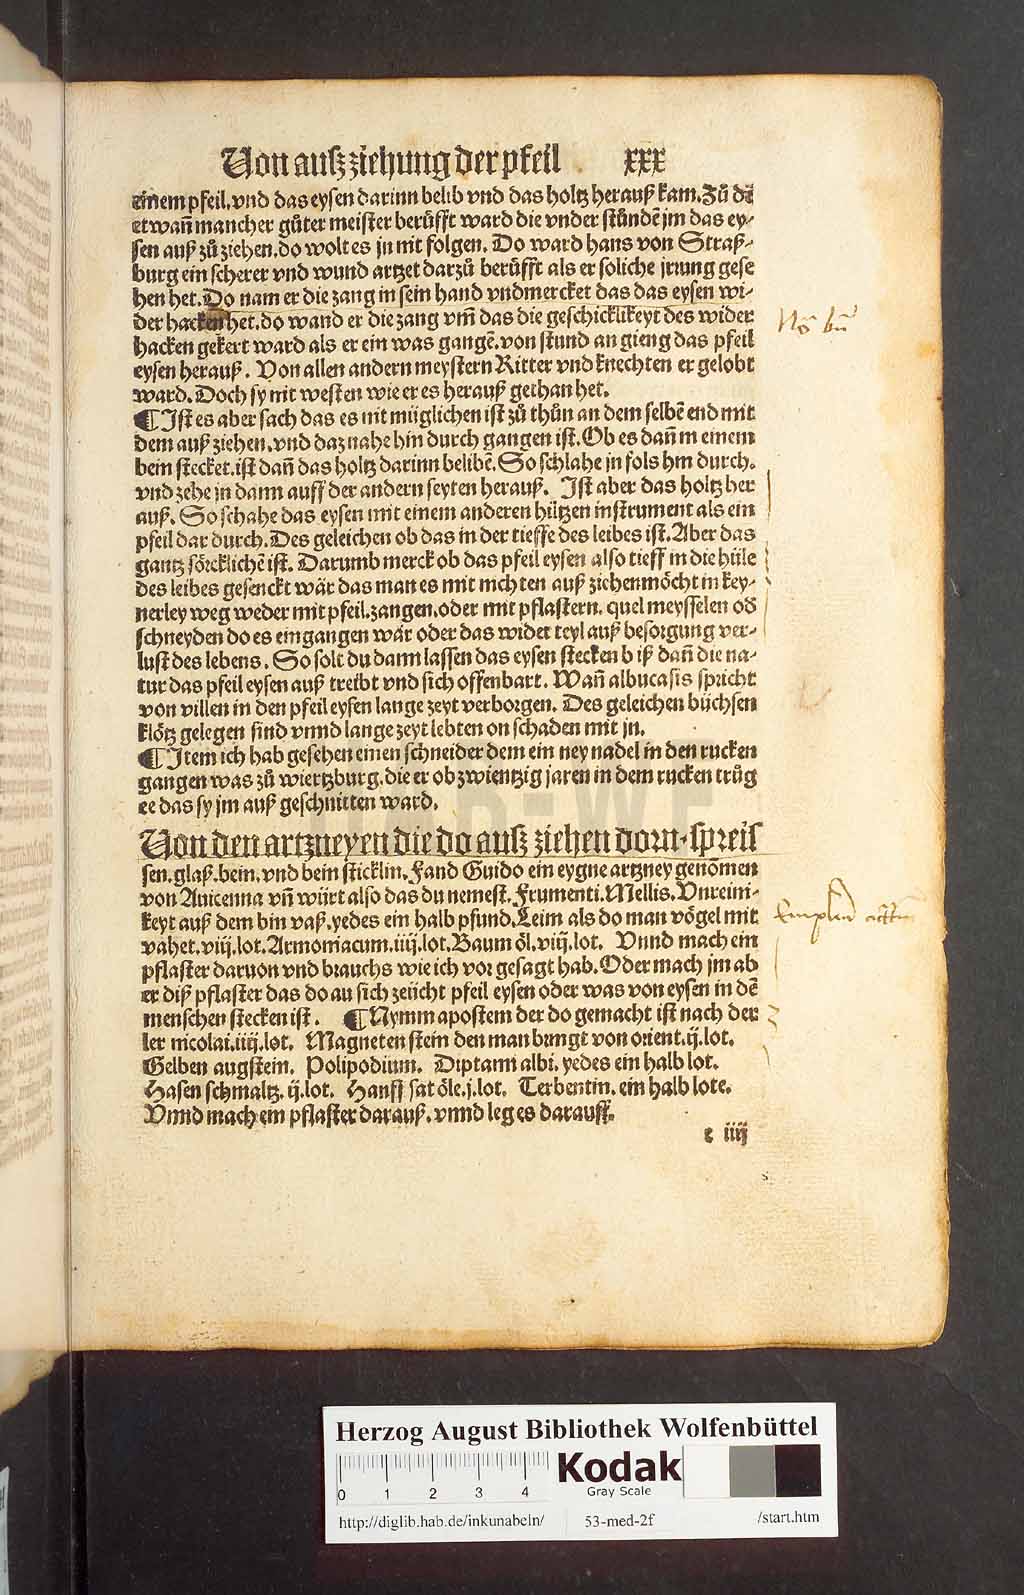 Von ausz ziehung der pfeil xxx
einem pfeil. vnd das eysen darinn belib vnd das holtz herauß kam. Zů dē
etwañ mancher gůter meister berůfft ward die vnder stůndē jm das ey-
sen auß zů ziehen. do wolt es jn nit folgen. Do ward hans von Straß-
burg ein scherer vnd wund artzet darzů berůfft als er soliche jrrung gese
hen het. Do nam er die zang in sein hand vnd mercket das das eysen wi-
der hacken het. do wand er die zang vm̄ das die geschicklikeyt des wider
hacken gekert ward als er ein was gangē. von stund an gieng das pfeil
eysen herauß. Von allen andern meystern Ritter vnd knechten er gelobt
ward. Doch sy nit westen wie er es herauß gethan het.
¶ Ist es aber sach das es nit müglichen ist zů thůn an dem selbē end mit
dem auß ziehen. vnd daz nahe hin durch gangen ist. Ob es dañ in einem
bein stecket. ist dañ das holtz darinn belibē. So schlahe jn fols hin durch.
vnd zehe jn dann auff der andern seyten herauß. Ist aber das holtz her
auß. So schahe das eysen mit einem anderen hültzen instrument als ein
pfeil dar durch. Des geleichen ob das in der tieffe des leibes ist. Aber das
gantz sörcklichē ist. Darumb merck ob das pfeil eysen also tieff in die hüle
des leibes gesenckt wär das man es mit nichten auß ziehen möcht in key-
nerley weg weder mit pfeil. zangen. oder mit pflastern. quel meysselen od
schneyden do es eingangen wär oder das wider teyl auß besorgung ver-
lust des lebens. So solt du dann lassen das eysen stecken b iß dañ die na-
tur das pfeil eysen auß treibt vnd sich offenbart. Wañ albucasis spricht
von villen in den pfeil eysen lange zeyt verborgen. Des geleichen büchsen
klötz gelegen sind vnnd lange zeyt lebten on schaden mit jn.
¶ Item ich hab gesehen einen schneider dem ein ney nadel in den rucken
gangen was zů wiertzburg. die er ob zwientzig jaren in dem rucken trůg
ee das sy jm auß geschnitten ward.
Von den artzneyen die do ausz ziehen dorn. spreis
sen. glaß. bein. vnd bein sticklin. Fand Guido ein eygne artzney genōmen
von Auicenna vñ würt also das du nemest. Frumenti. Mellis. Vnreini-
keyt auß dem bin vaß. yedes ein halb pfund. Leim als do man vögel mit
vahet. viij. lot. Armoniacum. iiij. lot. Baum öl. viij. lot. Vnnd mach ein
pflaster daruon vnd brauchs wie ich vor gesagt hab. Oder mach jm ab
er diß pflaster das do an sich zeücht pfeil eysen oder was von eysen in dē
menschen stecken ist. ¶ Nymm apostem der do gemacht ist nach der
ler nicolai. iiij. lot. Magneten stein den man bringt von orient. ij. lot.
Gelben augstein. Polipodium. Diptami albi. yedes ein halb lot.
Hasen schmaltz. ij. lot. Hanff sat öle. j. lot. Terbentin. ein halb lote.
Vnnd mach ein pflaster darauß. vnnd leg es darauff.
e iiij
HAB-WF
Herzog August Bibliothek Wolfenbüttel
0 1 2 3 4
Kodak
Gray Scale
http://diglib.hab.de/inkunabeln/ 53-med-2f /start.htm